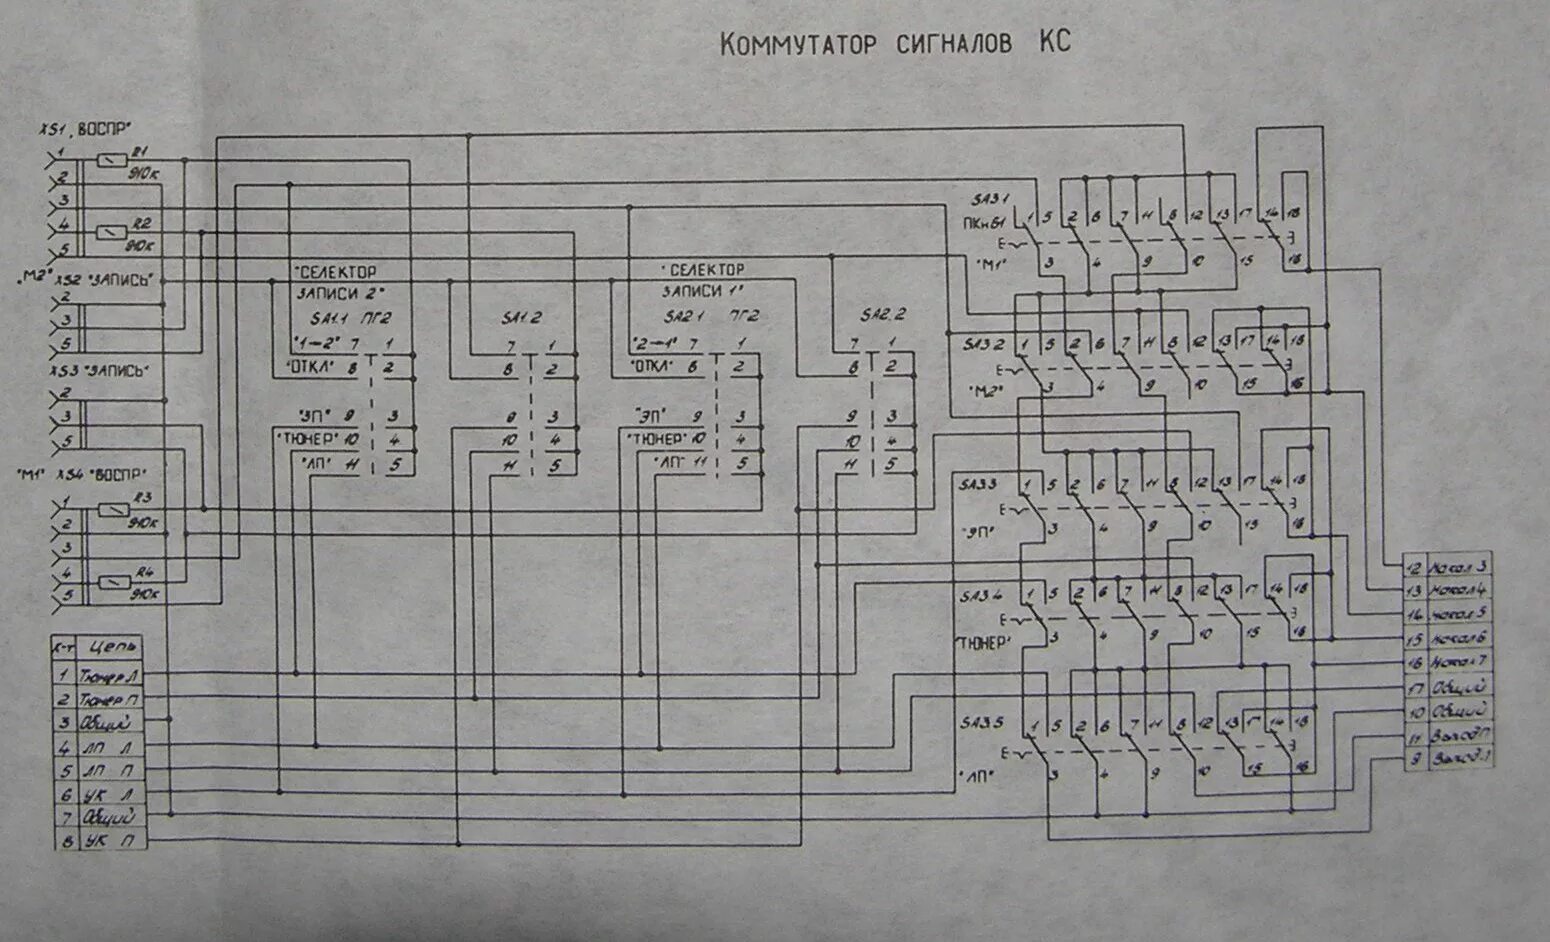 Коммутатор сигналов КС
XS1 „ВОСПР"
1
R1
910к
2
3
4
R2
910к
5
„М2" XS2 "ЗАПИСЬ"
2
3
5
XS3 "ЗАПИСЬ"
2
3
5
"М1" XS4 "ВОСПР"
1
R3
910к
2
3
4
R4
910к
5
"СЕЛЕКТОР
ЗАПИСИ 2"
SA1.1 ПГ2
"1–2" 7 1
"ОТКЛ" 8 2
"ЭП" 9 3
"ТЮНЕР" 10 4
"ЛП" 11 5
SA1.2
7 1
8 2
9 3
10 4
11 5
"СЕЛЕКТОР
ЗАПИСИ 1"
SA2.1 ПГ2
"2–1" 7 1
"ОТКЛ" 8 2
"ЭП" 9 3
"ТЮНЕР" 10 4
"ЛП" 11 5
SA2.2
7 1
8 2
9 3
10 4
11 5
SA3.1
ПКн61
1 5 2 6 7 11 8 12 13 17 14 18
"М1"
3 4 9 10 15 16
SA3.2
1 5 2 6 7 11 8 12 13 17 14 18
"М2"
3 4 9 10 15 16
SA3.3
1 5 2 6 7 11 8 12 13 17 14 18
"ЭП"
3 4 9 10 15 16
SA3.4
1 5 2 6 7 11 8 12 13 17 14 18
"ТЮНЕР"
3 4 9 10 15 16
SA3.5
1 5 2 6 7 11 8 12 13 17 14 18
"ЛП"
3 4 9 10 15 16
К-т Цепь
1 Тюнер Л
2 Тюнер П
3 Общий
4 ЛП Л
5 ЛП П
6 УК Л
7 Общий
8 УК П
12 Накал 3
13 Накал 4
14 Накал 5
15 Накал 6
16 Накал 7
17 Общий
10 Общий
11 Выход П
9 Выход Л